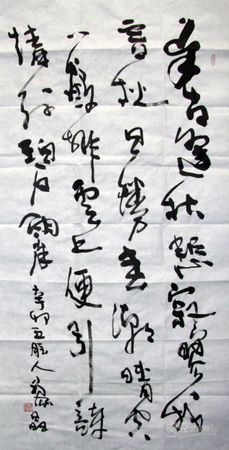 自古逢秋悲寂寥我
言秋日胜春潮晴空
一鹤排云上便引诗
情到碧霄
辛卯五月人